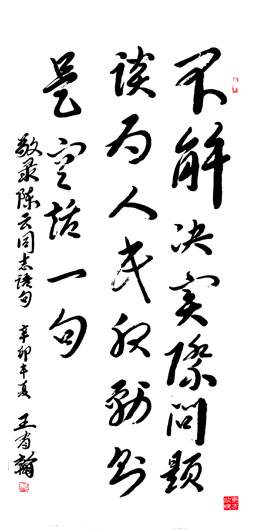 不解决实际问题
谈为人民服务则
是空话一句
敬录陈云同志语句 辛卯年夏 王有翰